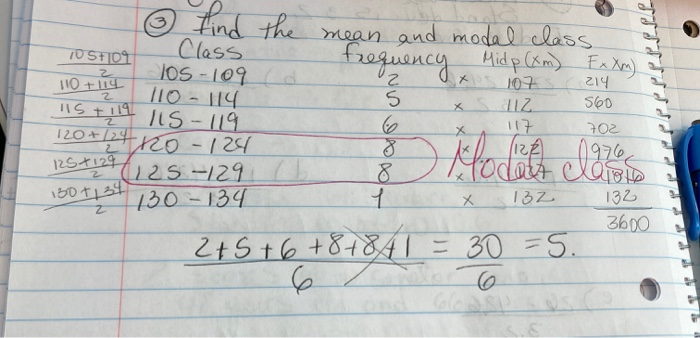 ③ Find the mean and modal class
Class frequency Midp (Xm) Fx Xm)
105+109/2 105-109 2 x 107 214
110+114/2 110-114 5 x 112 560
115+119/2 115-119 6 x 117 702
120+124/2 120-124 8 x 122 976
125+129/2 125-129 8 x
Modal class
130+134/2 130-134 1 x 132 132
3600
2+5+6+8+8+1/6 = 30/6 = 5.